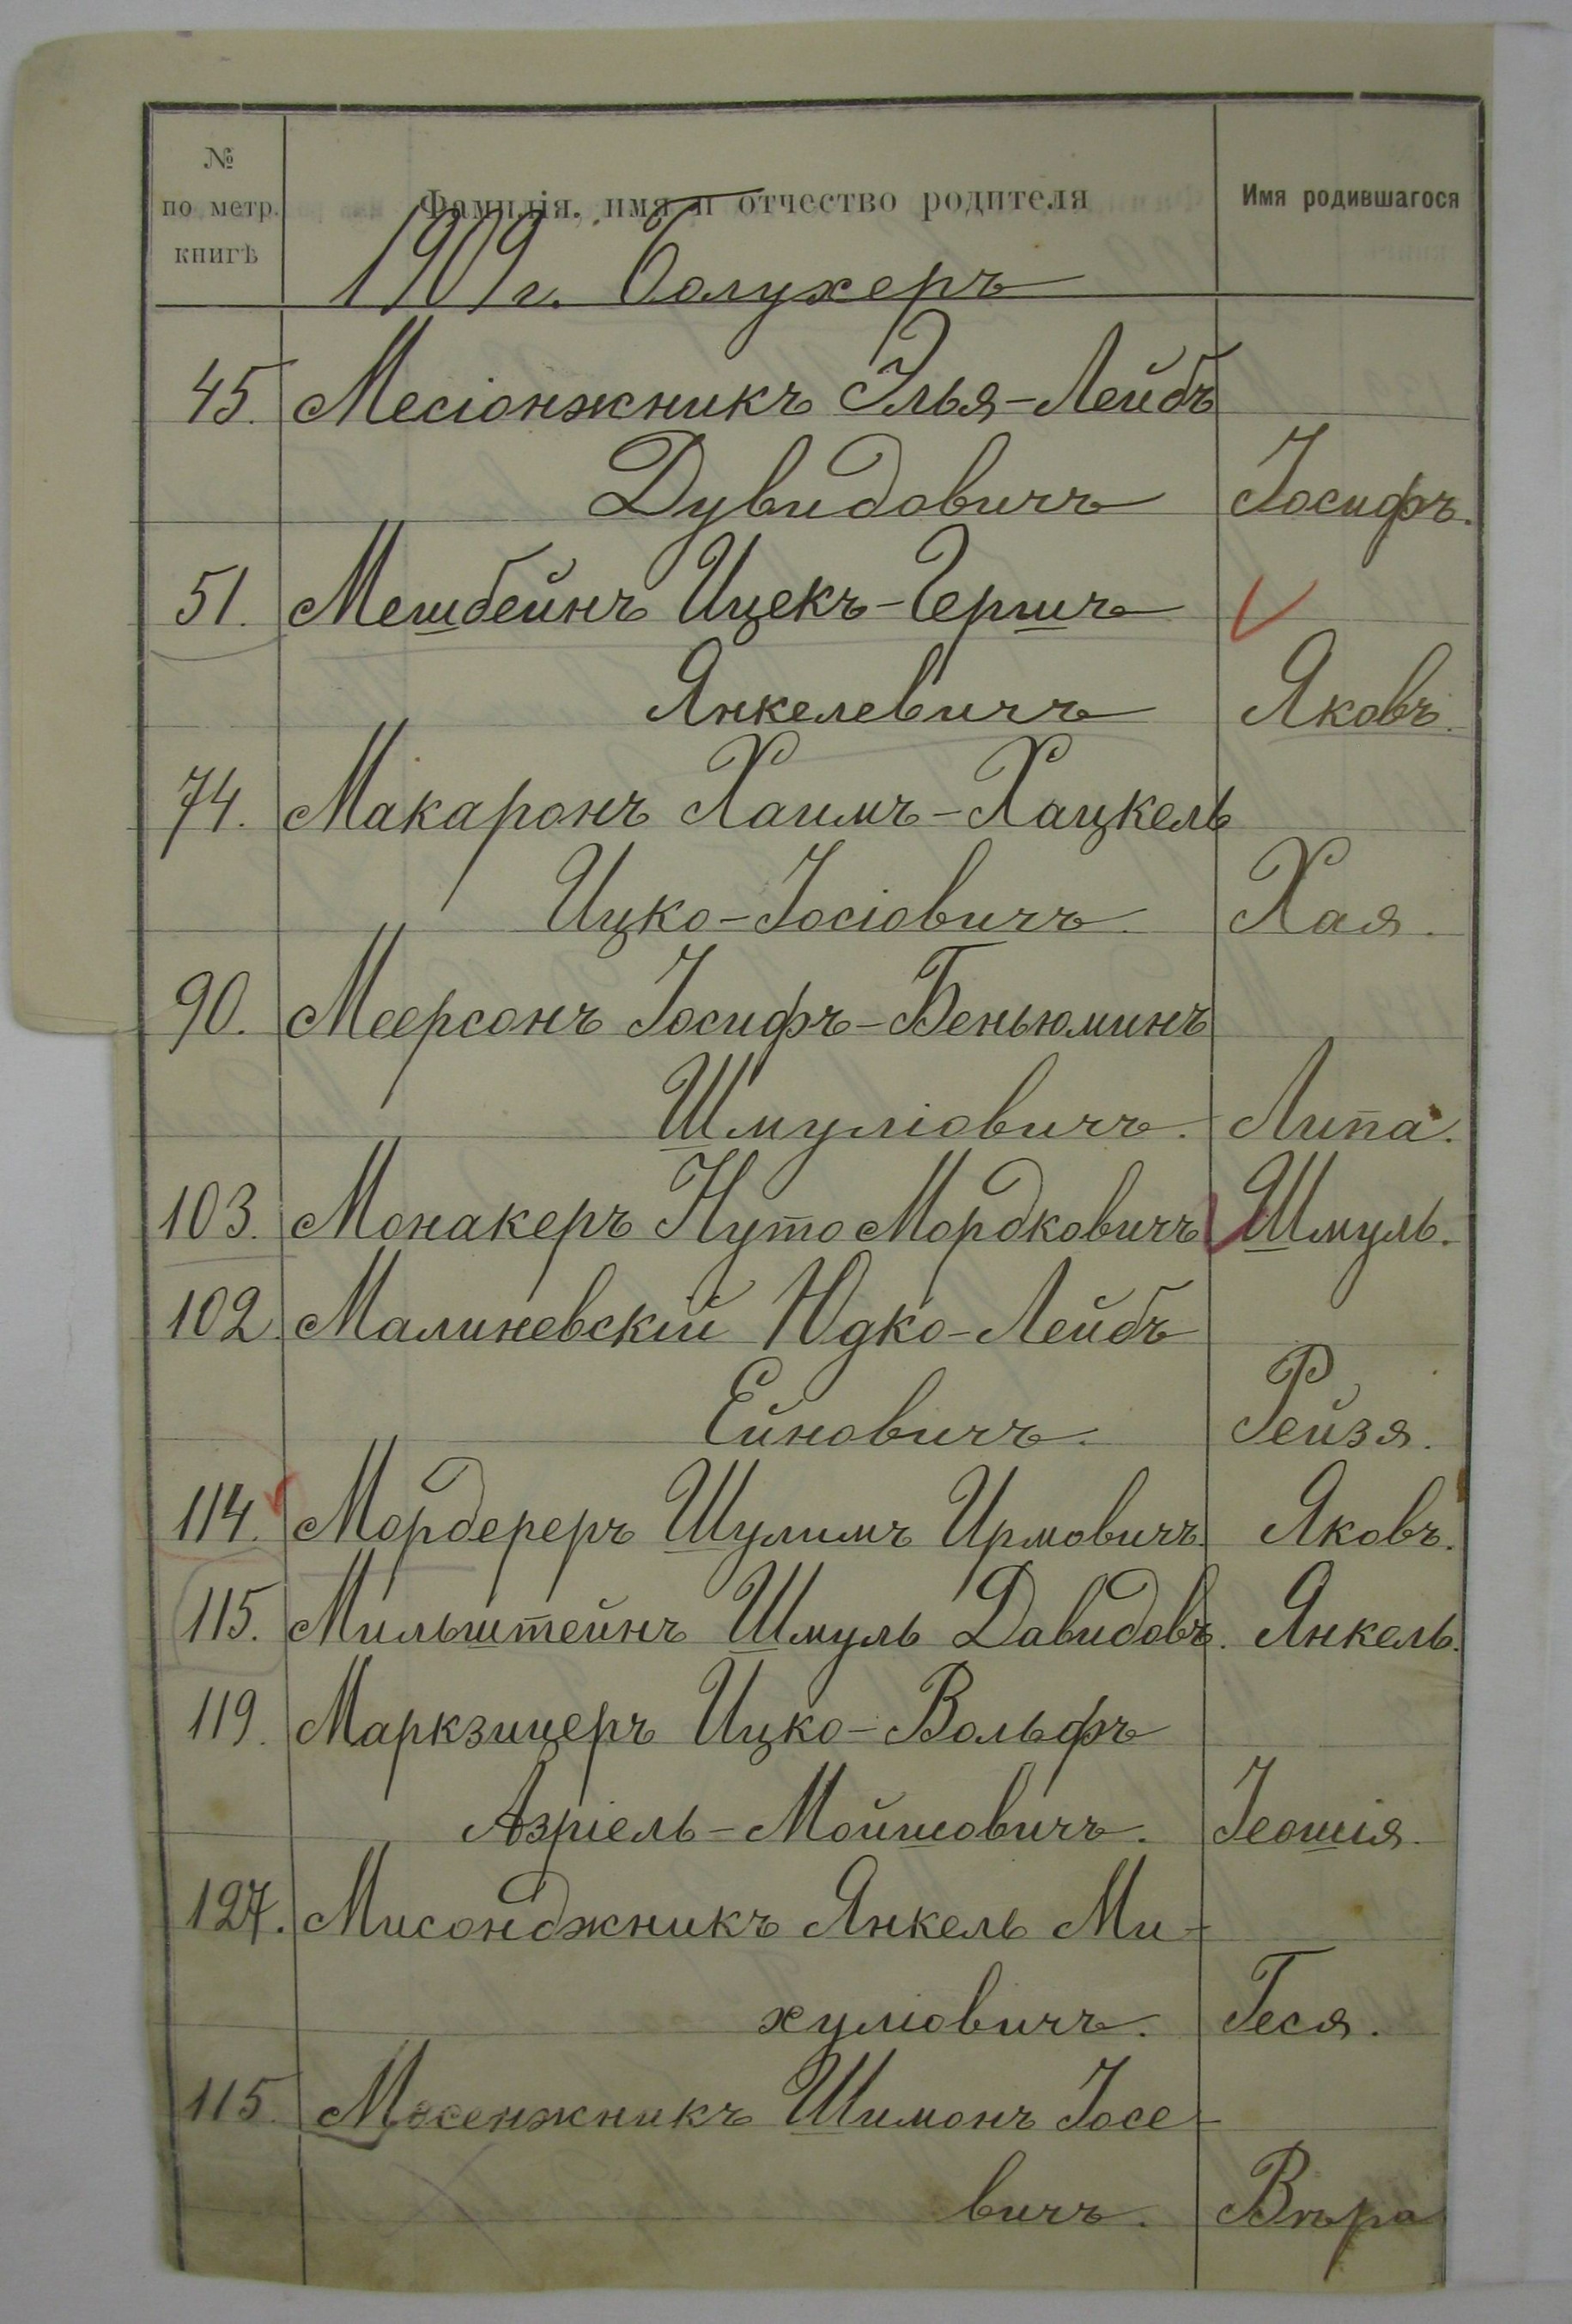 №
по метр.
книгѣ
Фамилія, имя и отчество родителя
Имя родившагося
1909 г.
45. Месіонжникъ Элья-Лейбъ
Дувидовичъ Іосифъ.
51. Мешбейнъ Ицекъ-Гершъ
Янкелевичъ Яковъ.
74. Макаронъ Хаимъ-Хацкель
Ицко-Іосіовичъ. Хая.
90. Меерсонъ Іосифъ-Беньюминъ
Шмуліовичъ. Липа.
103. Монакеръ Нуто Мордковичъ Шмуль.
102. Малиневскій Юдко-Лейбъ
Ейновичъ. Рейзя.
114. Мордереръ Шулимъ Ирмовичъ. Яковъ.
115. Мильштейнъ Шмуль Давидовъ. Янкель.
119. Маркзицеръ Ицко-Вольфъ
Азріель-Мойшовичъ. Іеошія.
127. Мисонджникъ Янкель Ми-
хуліовичъ. Геся.
115. Мосенжникъ Шимонъ Іосе-
вичъ. Вѣра